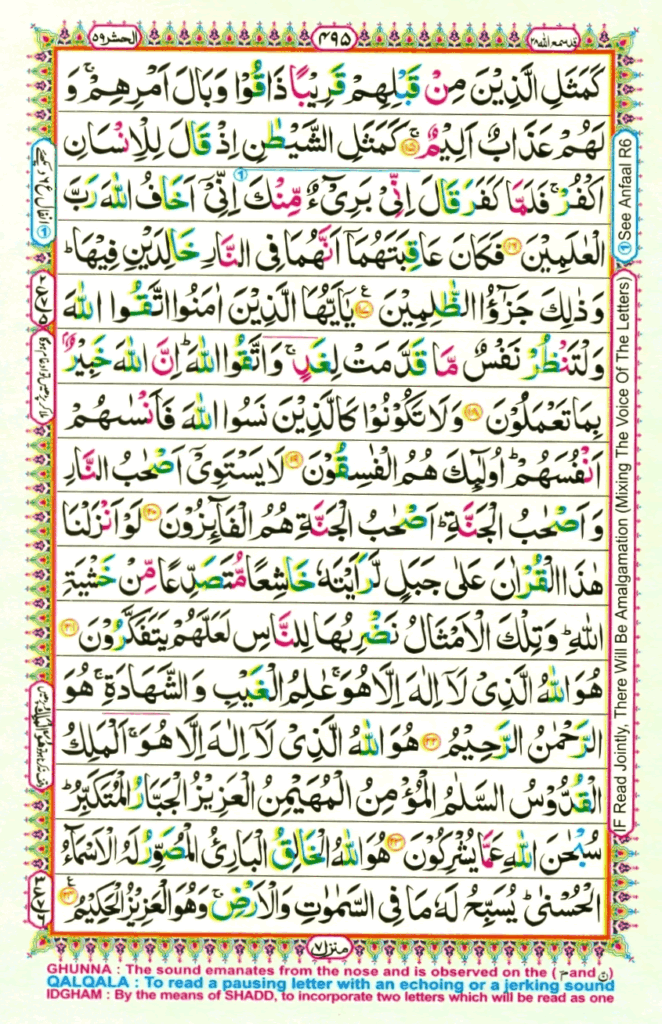 قد سمع الله ٢٨
٤٩٥
الحشر ٥٩
كَمَثَلِ الَّذِيْنَ مِنْ قَبْلِهِمْ قَرِيْبًا ذَاقُوْا وَبَالَ اَمْرِهِمْ ۚ وَ
لَهُمْ عَذَابٌ اَلِيْمٌ ﴿١٥﴾ كَمَثَلِ الشَّيْطٰنِ اِذْ قَالَ لِلْاِنْسَانِ
اكْفُرْ ۚ فَلَمَّا كَفَرَ قَالَ اِنِّىْ بَرِىْٓءٌ مِّنْكَ اِنِّىْٓ اَخَافُ اللّٰهَ رَبَّ
الْعٰلَمِيْنَ ﴿١٦﴾ فَكَانَ عَاقِبَتَهُمَآ اَنَّهُمَا فِى النَّارِ خَالِدَيْنِ فِيْهَا ؕ
وَذٰلِكَ جَزٰٓؤُا الظّٰلِمِيْنَ ﴿١٧﴾ ع يٰٓاَيُّهَا الَّذِيْنَ اٰمَنُوا اتَّقُوا اللّٰهَ
وَلْتَنْظُرْ نَفْسٌ مَّا قَدَّمَتْ لِغَدٍ ۚ وَاتَّقُوا اللّٰهَ ؕ اِنَّ اللّٰهَ خَبِيْرٌۢ
بِمَا تَعْمَلُوْنَ ﴿١٨﴾ وَلَا تَكُوْنُوْا كَالَّذِيْنَ نَسُوا اللّٰهَ فَاَنْسٰىهُمْ
اَنْفُسَهُمْ ؕ اُولٰٓئِكَ هُمُ الْفٰسِقُوْنَ ﴿١٩﴾ لَا يَسْتَوِىْٓ اَصْحٰبُ النَّارِ
وَاَصْحٰبُ الْجَنَّةِ ؕ اَصْحٰبُ الْجَنَّةِ هُمُ الْفَآئِزُوْنَ ﴿٢٠﴾ لَوْ اَنْزَلْنَا
هٰذَا الْقُرْاٰنَ عَلٰى جَبَلٍ لَّرَاَيْتَهٗ خَاشِعًا مُّتَصَدِّعًا مِّنْ خَشْيَةِ
اللّٰهِ ؕ وَتِلْكَ الْاَمْثَالُ نَضْرِبُهَا لِلنَّاسِ لَعَلَّهُمْ يَتَفَكَّرُوْنَ ﴿٢١﴾
هُوَ اللّٰهُ الَّذِىْ لَآ اِلٰهَ اِلَّا هُوَ ۚ عٰلِمُ الْغَيْبِ وَالشَّهَادَةِ ۚ هُوَ
الرَّحْمٰنُ الرَّحِيْمُ ﴿٢٢﴾ هُوَ اللّٰهُ الَّذِىْ لَآ اِلٰهَ اِلَّا هُوَ ۚ اَلْمَلِكُ
الْقُدُّوْسُ السَّلٰمُ الْمُؤْمِنُ الْمُهَيْمِنُ الْعَزِيْزُ الْجَبَّارُ الْمُتَكَبِّرُ ؕ
سُبْحٰنَ اللّٰهِ عَمَّا يُشْرِكُوْنَ ﴿٢٣﴾ هُوَ اللّٰهُ الْخَالِقُ الْبَارِئُ الْمُصَوِّرُ لَهُ الْاَسْمَآءُ
الْحُسْنٰى ؕ يُسَبِّحُ لَهٗ مَا فِى السَّمٰوٰتِ وَالْاَرْضِ ۚ وَهُوَ الْعَزِيْزُ الْحَكِيْمُ ﴿٢٤﴾ ع
منزل ٧
① See Anfaal R6
IF Read Jointly, There Will Be Amalgamation (Mixing The Voice Of The Letters)
GHUNNA : The sound emanates from the nose and is observed on the ( م and ن )
QALQALA : To read a pausing letter with an echoing or a jerking sound
IDGHAM : By the means of SHADD, to incorporate two letters which will be read as one